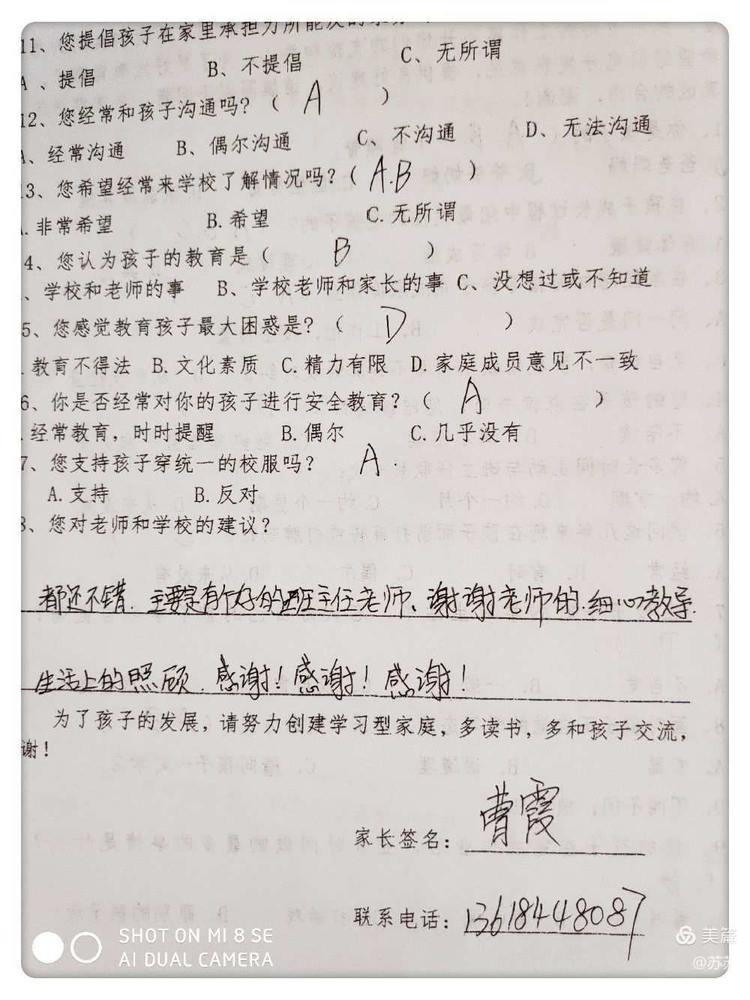 11、您提倡孩子在家里承担力所能及的
A、提倡 B、不提倡 C、无所谓
12、您经常和孩子沟通吗？（ A ）
A、经常沟通 B、偶尔沟通 C、不沟通 D、无法沟通
13、您希望经常来学校了解情况吗？（ A.B ）
.非常希望 B.希望 C.无所谓
4、您认为孩子的教育是（ B ）
、学校和老师的事 B、学校老师和家长的事 C、没想过或不知道
5、您感觉教育孩子最大困惑是？（ D ）
.教育不得法 B.文化素质 C.精力有限 D.家庭成员意见不一致
6、你是否经常对你的孩子进行安全教育？（ A ）
.经常教育，时时提醒 B.偶尔 C.几乎没有
7、您支持孩子穿统一的校服吗？ A
A.支持 B.反对
8、您对老师和学校的建议？
都还不错．主要是有个好的班主任老师、谢谢老师的．细心教导．
生活上的照顾．感谢！感谢！感谢！
为了孩子的发展，请努力创建学习型家庭，多读书，多和孩子交流，
谢！
家长签名：曹霞
联系电话：13618448087
SHOT ON MI 8 SE
AI DUAL CAMERA
美篇
@苏苏